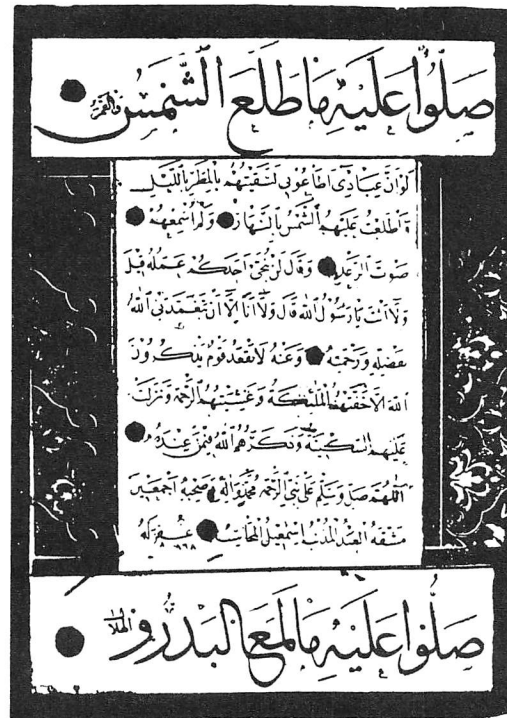 صَلُّوا عَلَيْهِ مَا طَلَعَ الشَّمْسُ وَالقَمَرُ
لَوْ أَنَّ عِبَادِي أَطَاعُونِي لَسَقَيْتُهُمُ بِالمَطَرِ بِاللَّيْلِ
وَأَطْلَعْتُ عَلَيْهِمُ الشَّمْسَ بِالنَّهَارِ وَلَمْ أُسْمِعْهُمْ
صَوْتَ الرَّعْدِ وَقَالَ لَنْ يُنَجِّيَ أَحَدَكُمْ عَمَلُهُ قِيلَ
وَلَا أَنْتَ يَا رَسُولَ اللهِ قَالَ وَلَا أَنَا إِلَّا أَنْ يَتَغَمَّدَنِيَ اللهُ
بِفَضْلِهِ وَرَحْمَتِهِ وَعَنْهُ لَا يَقْعُدُ قَوْمٌ يَذْكُرُونَ
اللهَ إِلَّا حَفَّتْهُمُ المَلَئِكَةُ وَغَشِيَتْهُمُ الرَّحْمَةُ وَنَزَلَتْ
عَلَيْهِمُ السَّكِينَةُ وَذَكَرَهُمُ اللهُ فِيمَنْ عِنْدَهُ
اللَّهُمَّ صَلِّ وَسَلِّمْ عَلَى نَبِيِّ الرَّحْمَةِ مُحَمَّدٍ وَآلِهِ وَصَحْبِهِ أَجْمَعِينَ
مَشَقَهُ العَبْدُ المُذْنِبُ إِسْمَعِيلُ غُفِرَ لَهُ
صَلُّوا عَلَيْهِ مَا لَمَعَ البَدْرُ وَالهِلَالُ